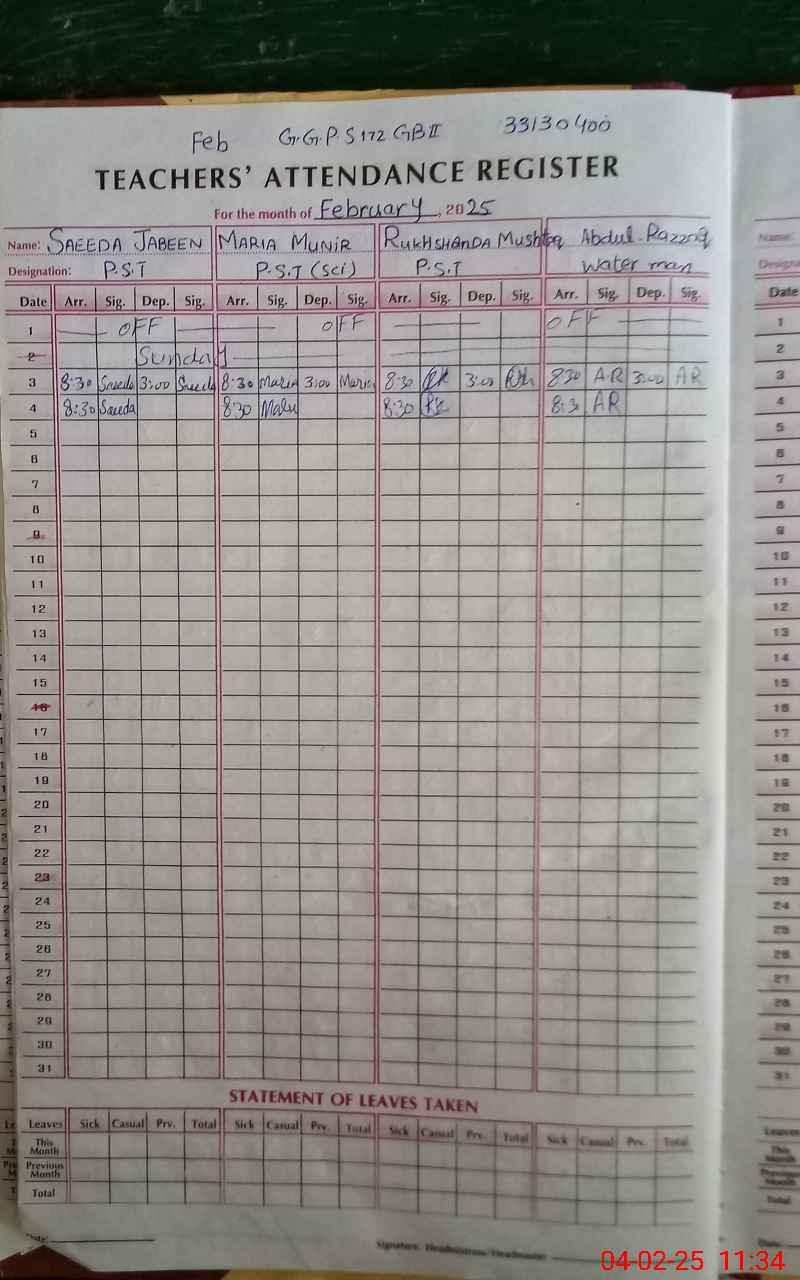 Feb G.G.P.S 172 GB II 33130400
TEACHERS' ATTENDANCE REGISTER
For the month of February, 2025
Name: SAEEDA JABEEN MARIA MUNIR RUKHSHANDA Mushtaq Abdul-Razzaq
Designation: P.S.T P.S.T (sci) P.S.T water man
Date Arr. Sig. Dep. Sig. Arr. Sig. Dep. Sig. Arr. Sig. Dep. Sig. Arr. Sig. Dep. Sig.
1 OFF OFF OFF
2 Sunday
3 8:30 Saeeda 3:00 Saeeda 8:30 Maria 3:00 Maria 8:30 3:00 830 A.R 3:00 AR
4 8:30 Saeeda 8:30 8:30 8:3 AR
5
6
7
8
9
10
11
12
13
14
15
16
17
18
19
20
21
22
23
24
25
26
27
28
29
30
31
STATEMENT OF LEAVES TAKEN
Leaves Sick Casual Prv. Total Sick Casual Prv. Total Sick Casual Prv. Total Sick Casual Prv. Total
This Month
Previous Month
Total
Date:
Signature: Headmistress/Headmaster
Name:
Date
1
2
3
4
5
6
7
8
9
10
11
12
13
14
15
16
17
18
19
20
21
22
23
24
25
26
27
28
29
30
31
Leaves
This Month
Previous Month
Total
04-02-25 11:34